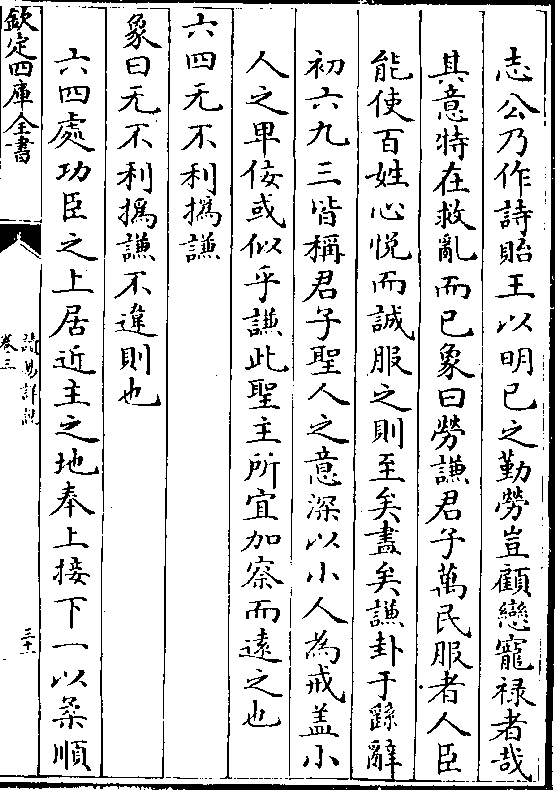 志公乃作詩貽王以明已之勤勞豈顧戀寵禄者哉
其意特在救亂而已象曰勞謙君子萬民服者人臣
能使百姓心悦而誠服之則至矣盡矣謙卦于繇辭
初六九三皆稱君子聖人之意深以小人為戒盖小
人之卑佞或似乎謙此聖主所宜加察而遠之也
六四无不利撝謙
象曰无不利撝謙不違則也
六四處功臣之上居近主之地奉上接下一以柔順
欽定四庫全書
讀易詳説
卷三
三十